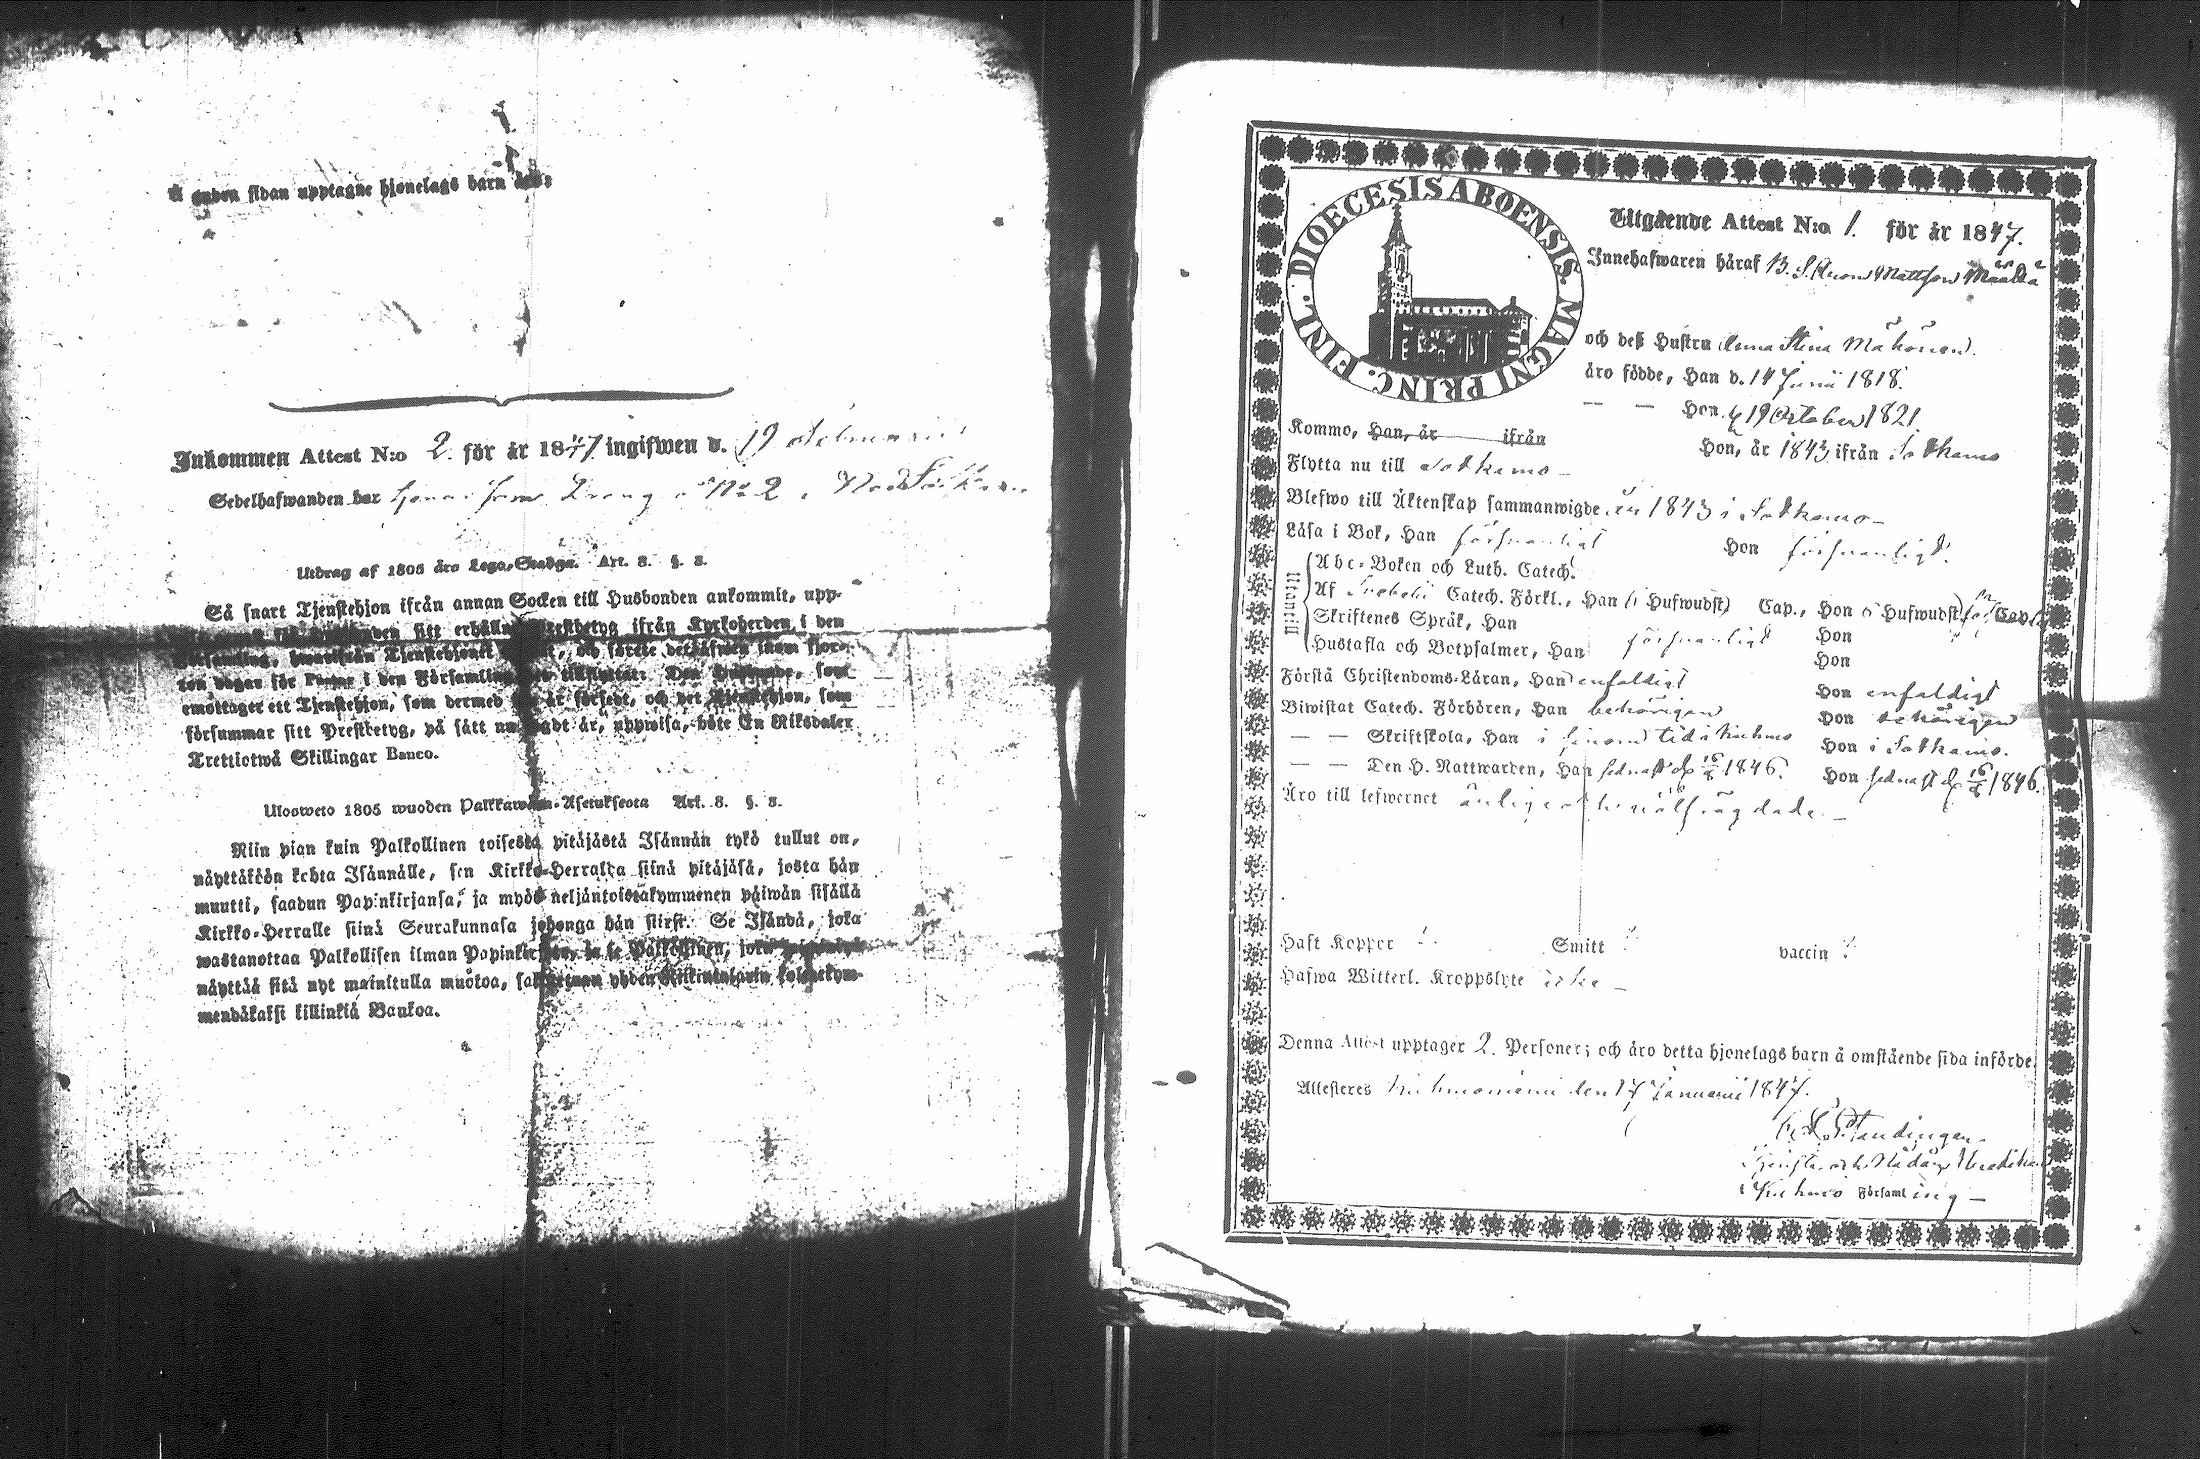 Å andra sidan upptagne hjonelags barn äro:
Inkommen Attest N:o 2. för år 1847 ingifwen d. 19
Sedelhafwanden har
Utdrag af 1805 års Lego-Stadga. Art. 3. §. 3.
Så snart Tjenstehjon ifrån annan Socken till Husbonden ankommit, upp-
sitt Prestbetyg ifrån Kyrkoherden i den
Församling, hwarifrån Tjenstehjonet och förete det inom fjor-
ton dagar för i den Församling
emottager ett Tjenstehjon, som dermed är försedt, och det Tjenstehjon, som
försummar sitt Prestbetyg, på sätt är, uppwisa, böte En Riksdaler
Trettiotwå Skillingar Banco.
Ulosweto 1805 wuoden Palkkawäen-Asetuksesta Art. 3. §. 3.
Niin pian kuin Palkollinen toisesta pitäjästä Isännän tykö tullut on,
näyttäköön kohta Isännälle, sen Kirkko-Herralda siinä pitäjäsä, josta hän
muutti, saadun Papinkirjansa, ja myös neljäntoistakymmenen päiwän sisällä
Kirkko-Herralle siinä Seurakunnasa johonga hän siirsi. Se Isändä, joka
wastanottaa Palkollisen ilman Papinkirjata ja se Palkollinen, joka
näyttää sitä nyt mainitulla muotoa, yhden Riikintalarin kolmekym-
mendäkaksi killinkiä Bankoa.
DIOECESIS ABOENSIS. MAGNI PRINC. FINL.
Utgående Attest N:o 1. för år 1847.
Innehafwaren häraf B. S. Aron Mattsson Määttä
och deß Hustru Anna Stina Mähönen.
äro födde, Han d. 14 Junii 1818.
— — Hon d. 19 October 1821.
Kommo, Han, år ifrån Hon, år 1843 ifrån Sotkamo
Flytta nu till Sotkamo —
Blefwo till Äktenskap sammanwigde år 1843 i Sotkamo —
Läsa i Bok, Han försvarligt Hon försvarligt.
Utantill
Abc-Boken och Luth. Catech.
Af Svebelii Catech. Förkl., Han (i Hufwudst) Cap., Hon (i Hufwudst) Cap.
Skriftenes Språk, Han Hon
Hustafla och Botpsalmer, Han försvarligt Hon
Förstå Christendoms-Läran, Han enfaldigt Hon enfaldigt
Biwistat Catech. Förhören, Han behörigen Hon behörigen
— — Skriftskola, Han i sinom tid i Kuhmo Hon i Sotkamo.
— — Den H. Nattwarden, Han sednast d. 1846. Hon sednast d. 1846.
Äro till lefwernet ärliga och wälfrägdade. —
Haft Koppor Smitt vaccin
Hafwa Witterl. Kroppslyte icke —
Denna Attest upptager 2. Personer; och äro detta hjonelags barn å omstående sida införde.
Attesteras Kuhmoniemi den 17 Januarii 1847.
i Kuhmo Församling —